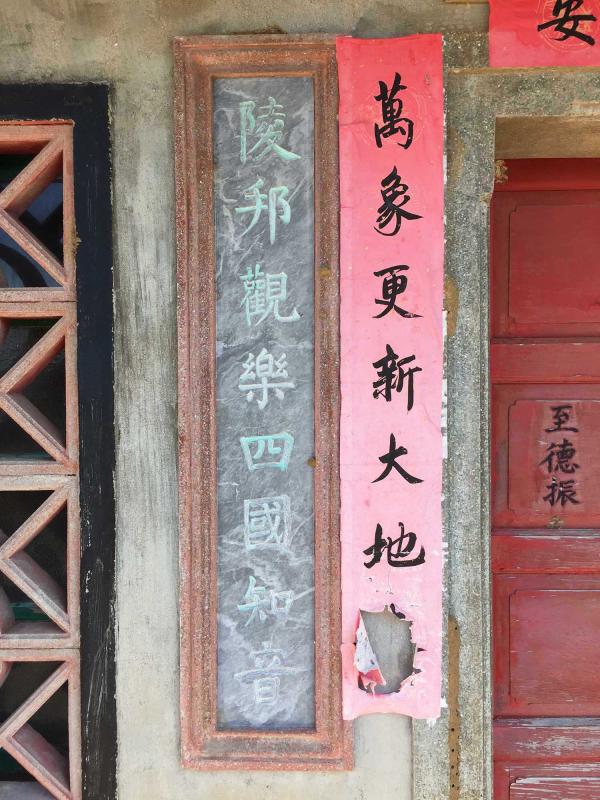 安
至德振
萬象更新大地
陵邦觀樂四國知音